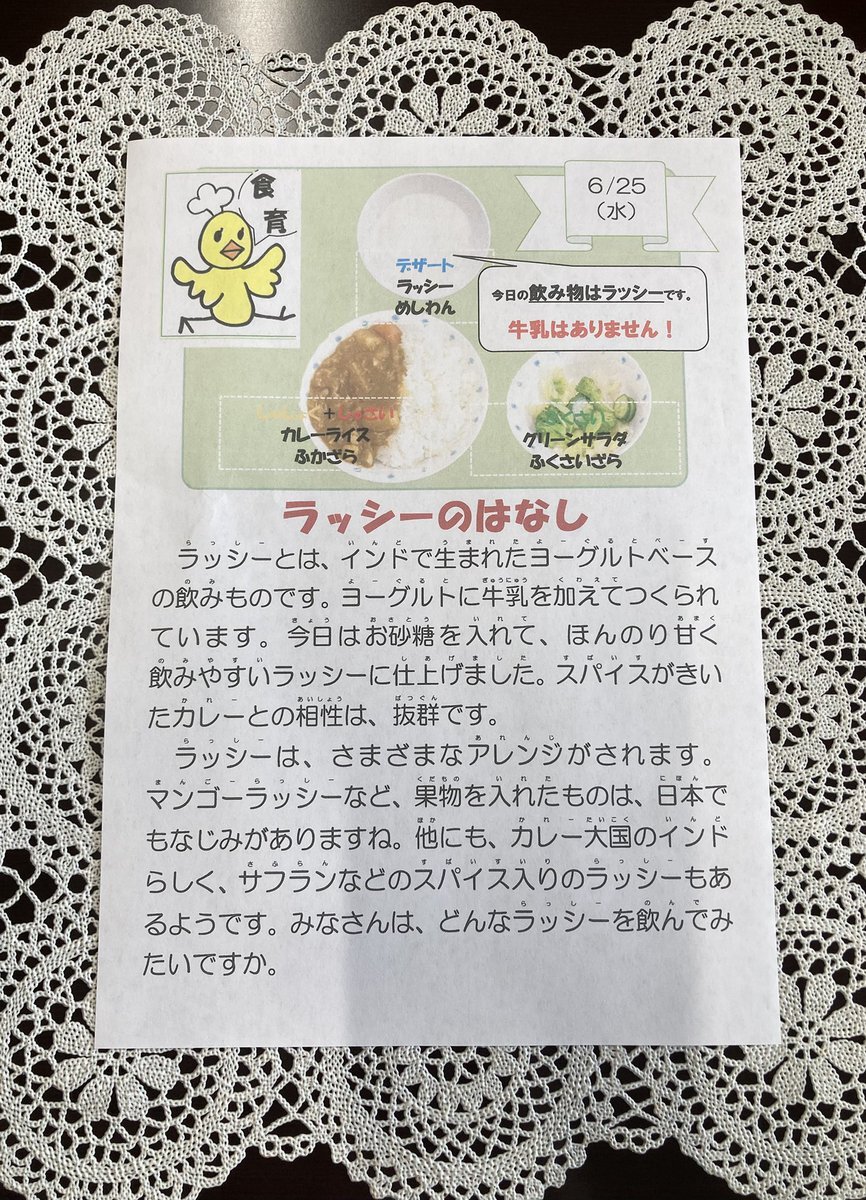 食育
6/25
(水)
デザート
ラッシー
めしわん
今日の飲み物はラッシーです。
牛乳はありません！
しゅしょく+しゅさい
カレーライス
ふかざら
グリーンサラダ
ふくさいざら
ラッシーのはなし
ラッシーとは、インドで生まれたヨーグルトベース
の飲みものです。ヨーグルトに牛乳を加えてつくられ
ています。今日はお砂糖を入れて、ほんのり甘く
飲みやすいラッシーに仕上げました。スパイスがきい
たカレーとの相性は、抜群です。
ラッシーは、さまざまなアレンジがされます。
マンゴーラッシーなど、果物を入れたものは、日本で
もなじみがありますね。他にも、カレー大国のインド
らしく、サフランなどのスパイス入りのラッシーもあ
るようです。みなさんは、どんなラッシーを飲んでみ
たいですか。